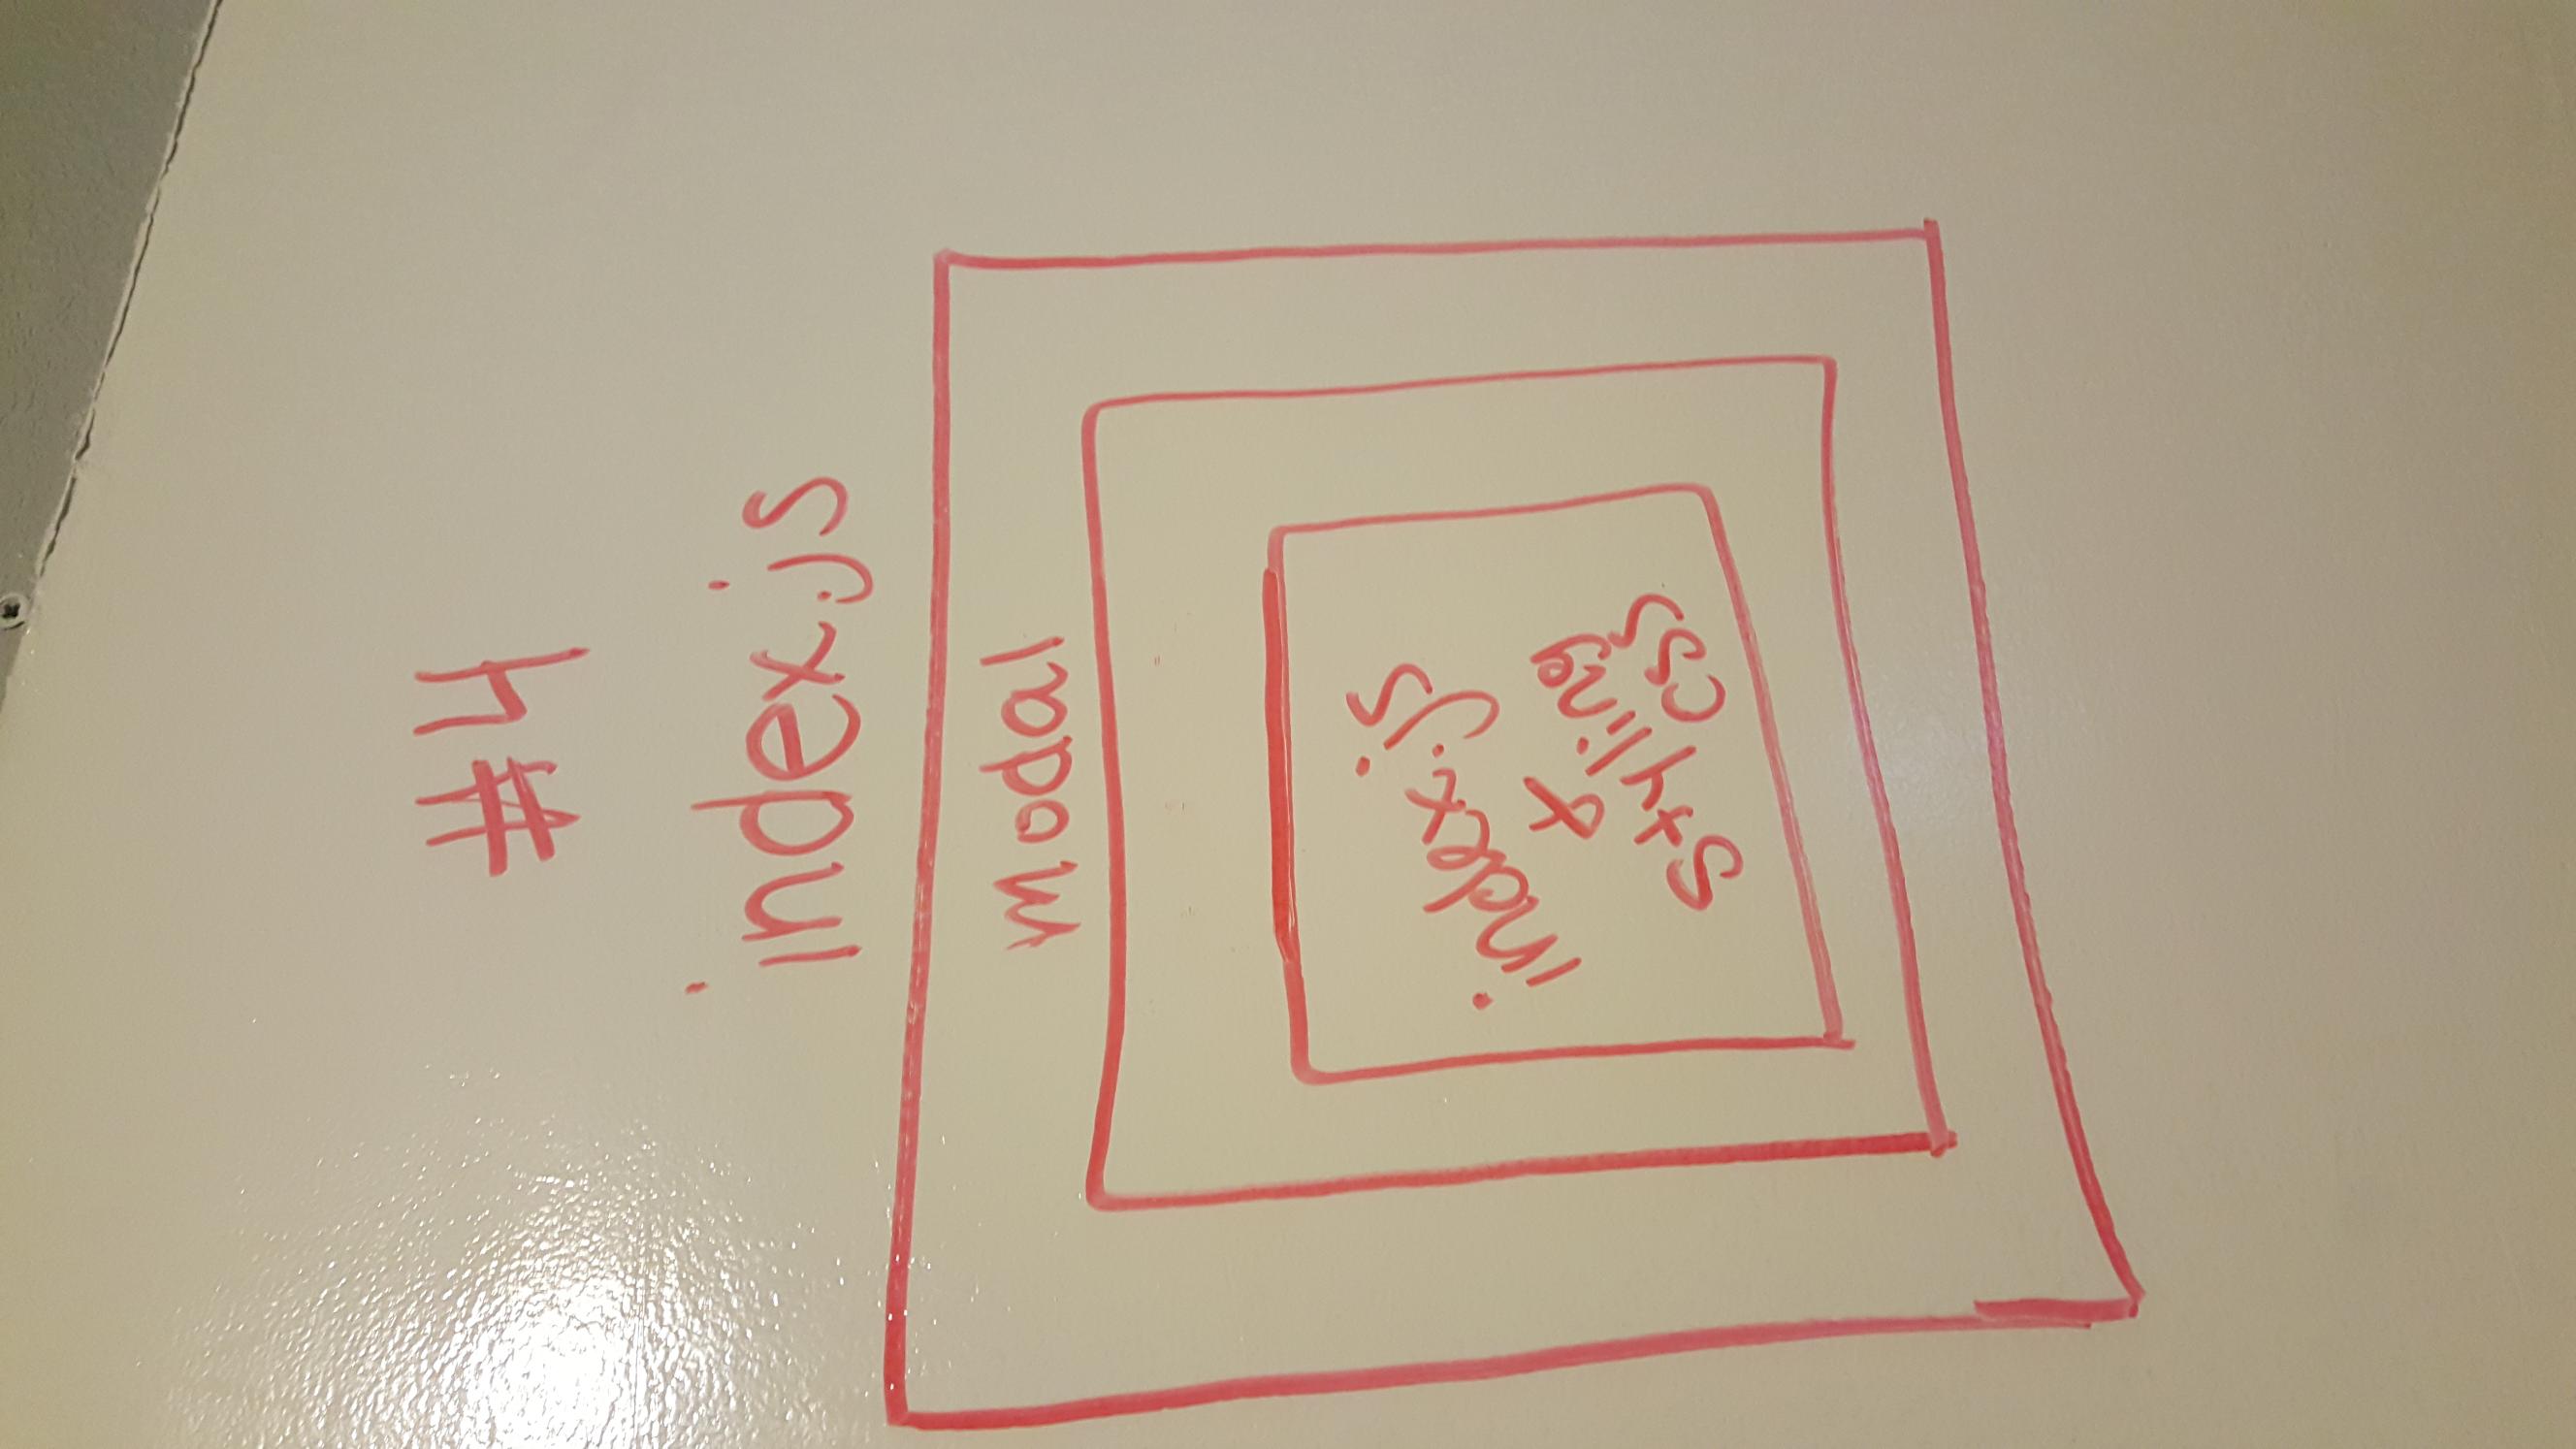 #4
index.js
modal
index.js
&
styling
css